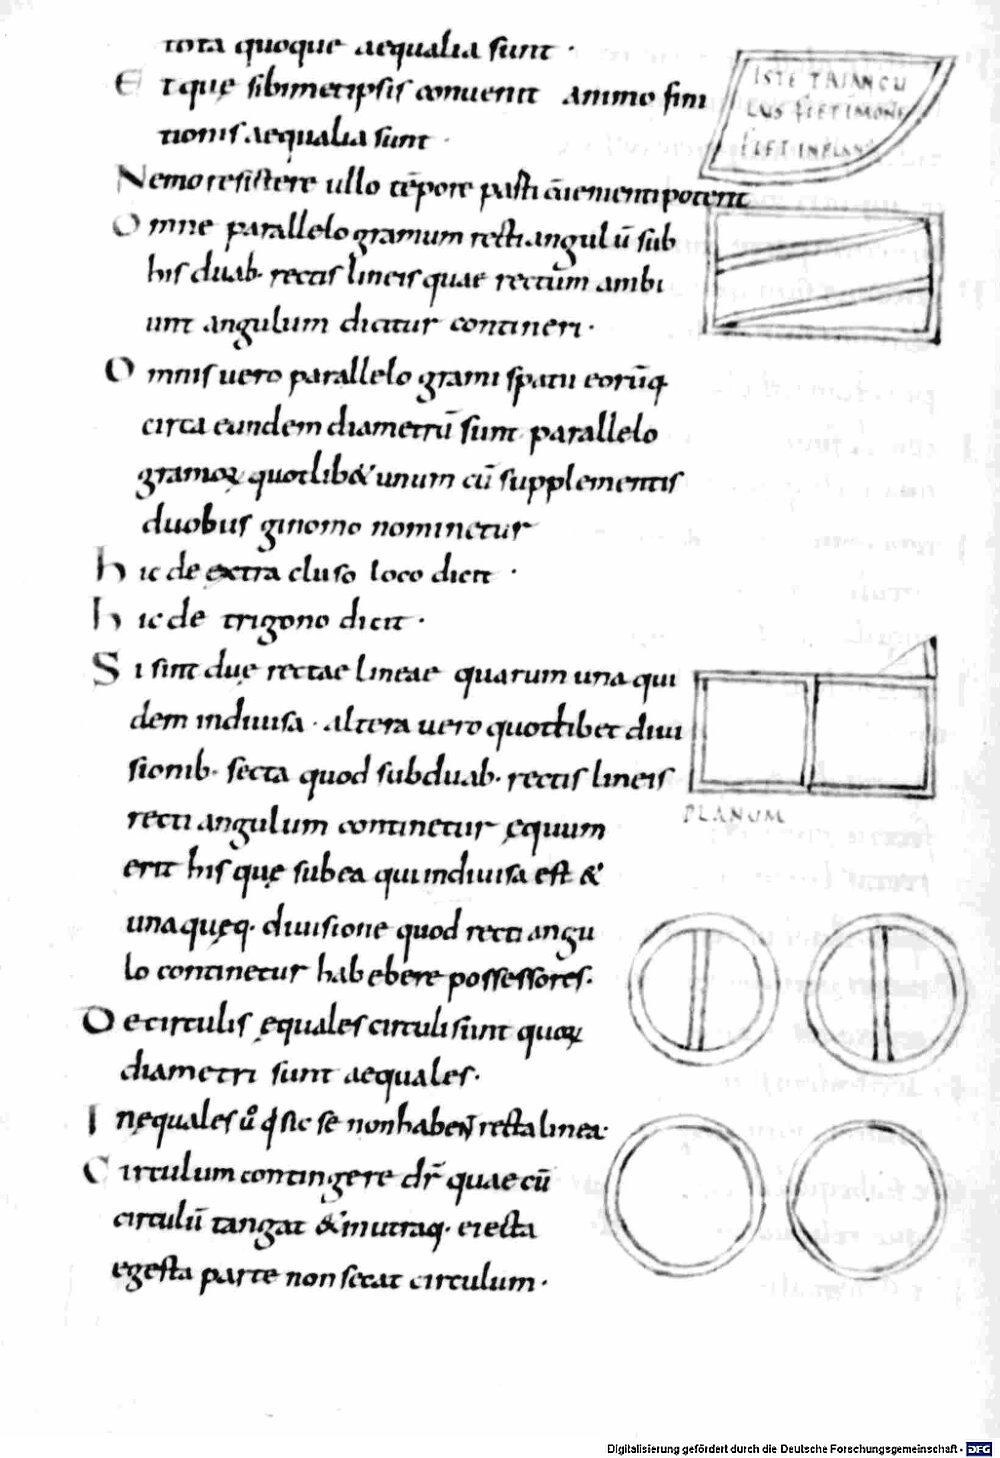 tota quoque aequalia sunt ·
Et quę sibimetipsis conueniit ammo fini
tionis aequalia sunt ·
Nemo resistere ullo tēpore pasti āiementi potent
Omne parallelogramum recti angulū sub
his duab· rectis lineis quae rectum ambi
unt angulum dicitur contineri ·
Omnis uero parallelo grami spatii eorūq
circa eundem diametrū sunt parallelo
gramoꝝ quotlib& unum cū supplementis
duobus ginomo nominetur
hic de extra cluso loco dicit ·
hic de trigono dicit ·
Si sint duę rectae lineae quarum una qui
dem indiuisa · altera uero quotlibet diui
sionib· secta quod sub duab· rectis lineis
recti angulum continetur ęquum
erit his que sub ea qui indiuisa est &
una quęq· diuisione quod recti angu
lo continetur hab ebere possessores·
De circulis ęquales circuli sunt quoꝝ
diametri sunt aequales·
Inęquales ů ꝗ sic se non habeɴt recta linea·
Circulum contingere dr̄ quae cū
circulū tangat & in utraq· eiecta
egesta parte non secat circulum ·
ISTE TRIANGU
LUS FIET IMONE
FIET IN PLANO
PLANUM
Digitalisierung gefördert durch die Deutsche Forschungsgemeinschaft - DFG